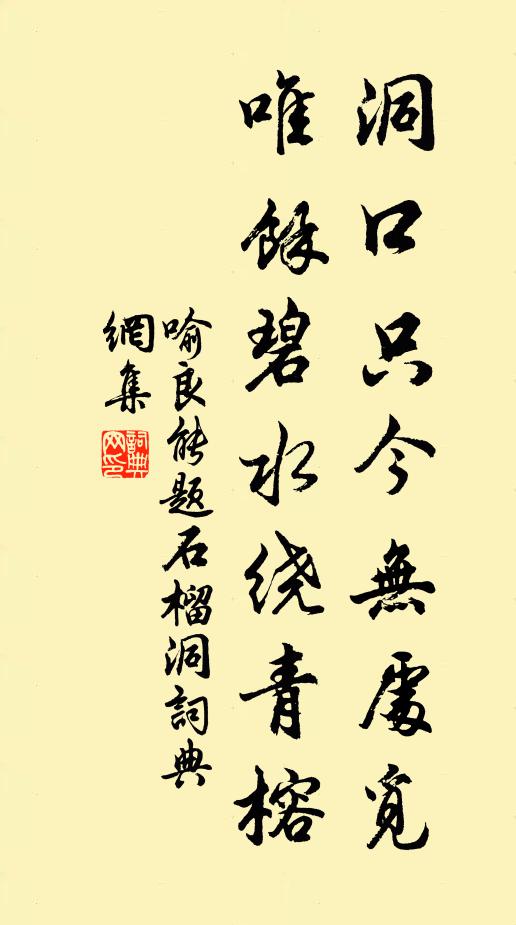 洞口只今無處覓
唯餘碧水绕青榕
喻良能题石榴洞詞典
網集
詞典網印